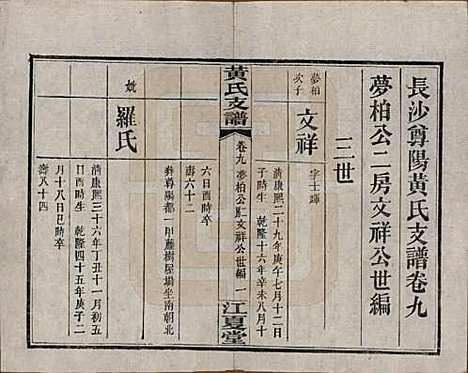 長沙尊陽黃氏支譜卷九
夢柏公二房文祥公世編
三世
夢柏
次子
文祥
字士輝
清康熙二十九年庚午七月十二日
子時生 乾隆十六年辛未八月十
黃氏支譜
卷九 夢柏公二房文祥公世編 一
江夏堂
六日酉時卒
壽六十二
葬尊陽都一甲藤樹屋場坐南朝北
妣
羅氏
清康熙三十六年丁丑十一月初五
日酉時生 乾隆四十五年庚子二
月十八日巳時卒
壽八十四